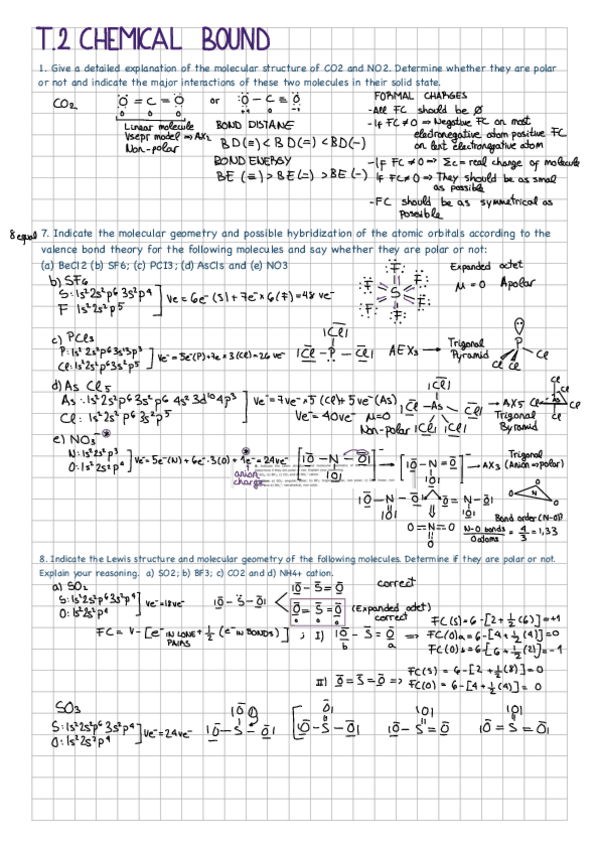 T.2 CHEMICAL BOUND
1. Give a detailed explanation of the molecular structure of CO2 and NO2. Determine whether they are polar
or not and indicate the major interactions of these two molecules in their solid state.
CO2 O = C = O or O - C ≡ O
0 0 0 +1 0 -1
Linear molecule
Vsepr model => AX2
Non-polar
BOND DISTANE
BD(≡) < BD(=) < BD(-)
BOND ENERGY
BE (≡) > BE(=) > BE(-)
FORMAL CHARGES
- All FC should be Ø
- If FC ≠ 0 => Negative FC on most
electronegative atom positive FC
on last electronegative atom
- If FC ≠ 0 => Σc = real charge of molecule
If FC ≠ 0 => They should be as small
as possible
- FC should be as symmetrical as
Possible
8 equal 7. Indicate the molecular geometry and possible hybridization of the atomic orbitals according to the
valence bond theory for the following molecules and say whether they are polar or not:
(a) BeCl2 (b) SF6; (c) PCl3; (d) AsCls and (e) NO3
b) SF6
S: 1s² 2s² p⁶ 3s² p⁴
F 1s² 2s² p⁵
Ve = 6e⁻(S) + 7e⁻ x 6(F) = 48 ve⁻
Expanded octet
μ = 0 Apolar
c) PCl3
P: 1s² 2s² p⁶ 3s² p³
Cl: 1s² 2s² p⁶ 3s² p⁵
Ve⁻ = 5e⁻(P) + 7e x 3(Cl) = 26 ve⁻
AEX3 → Trigonal
Pyramid
d) As Cl5
As: 1s² 2s² p⁶ 3s² p⁶ 4s² 3d¹⁰ 4p³
Cl: 1s² 2s² p⁶ 3s² p⁵
Ve⁻ = 7ve⁻ x 5 (Cl) + 5 ve⁻(As)
Ve⁻ = 40ve⁻ μ=0
Non-polar
→ AX5
Trigonal
Bypramid
e) NO3⁻
N: 1s² 2s² p³
O: 1s² 2s² p⁴
Ve⁻ = 5e⁻(N) + 6e⁻·3(O) + 1e⁻ = 24ve⁻
anion
charge
Trigonal
→ AX3 (Anion => polar)
O = N = O
Bond order (N-O)
N-O bonds / O atoms = 4/3 = 1,33
8. Indicate the Lewis structure and molecular geometry of the following molecules. Determine if they are polar or not.
Explain your reasoning. a) SO2; b) BF3; c) CO2 and d) NH4+ cation.
a) SO2
S: 1s² 2s² p⁶ 3s² p⁴
O: 1s² 2s² p⁴
Ve⁻ = 18ve⁻
O - S - O
O - S = O correct
O = S = O (Expanded octet)
0 0 0 correct
FC = V - [e⁻ IN LONE PAIRS + 1/2 (e⁻ IN BONDS)] ; I) O - S = O =>
b a
FC(S) = 6 - [2 + 1/2 (6)] = +1
FC(O)a = 6 - [4 + 1/2 (4)] = 0
FC(O)b = 6 - [6 + 1/2 (2)] = -1
II) O = S = O =>
FC(S) = 6 - [2 + 1/2 (8)] = 0
FC(O) = 6 - [4 + 1/2 (4)] = 0
SO3
S: 1s² 2s² p⁶ 3s² p⁴
O: 1s² 2s² p⁴
Ve⁻ = 24ve⁻